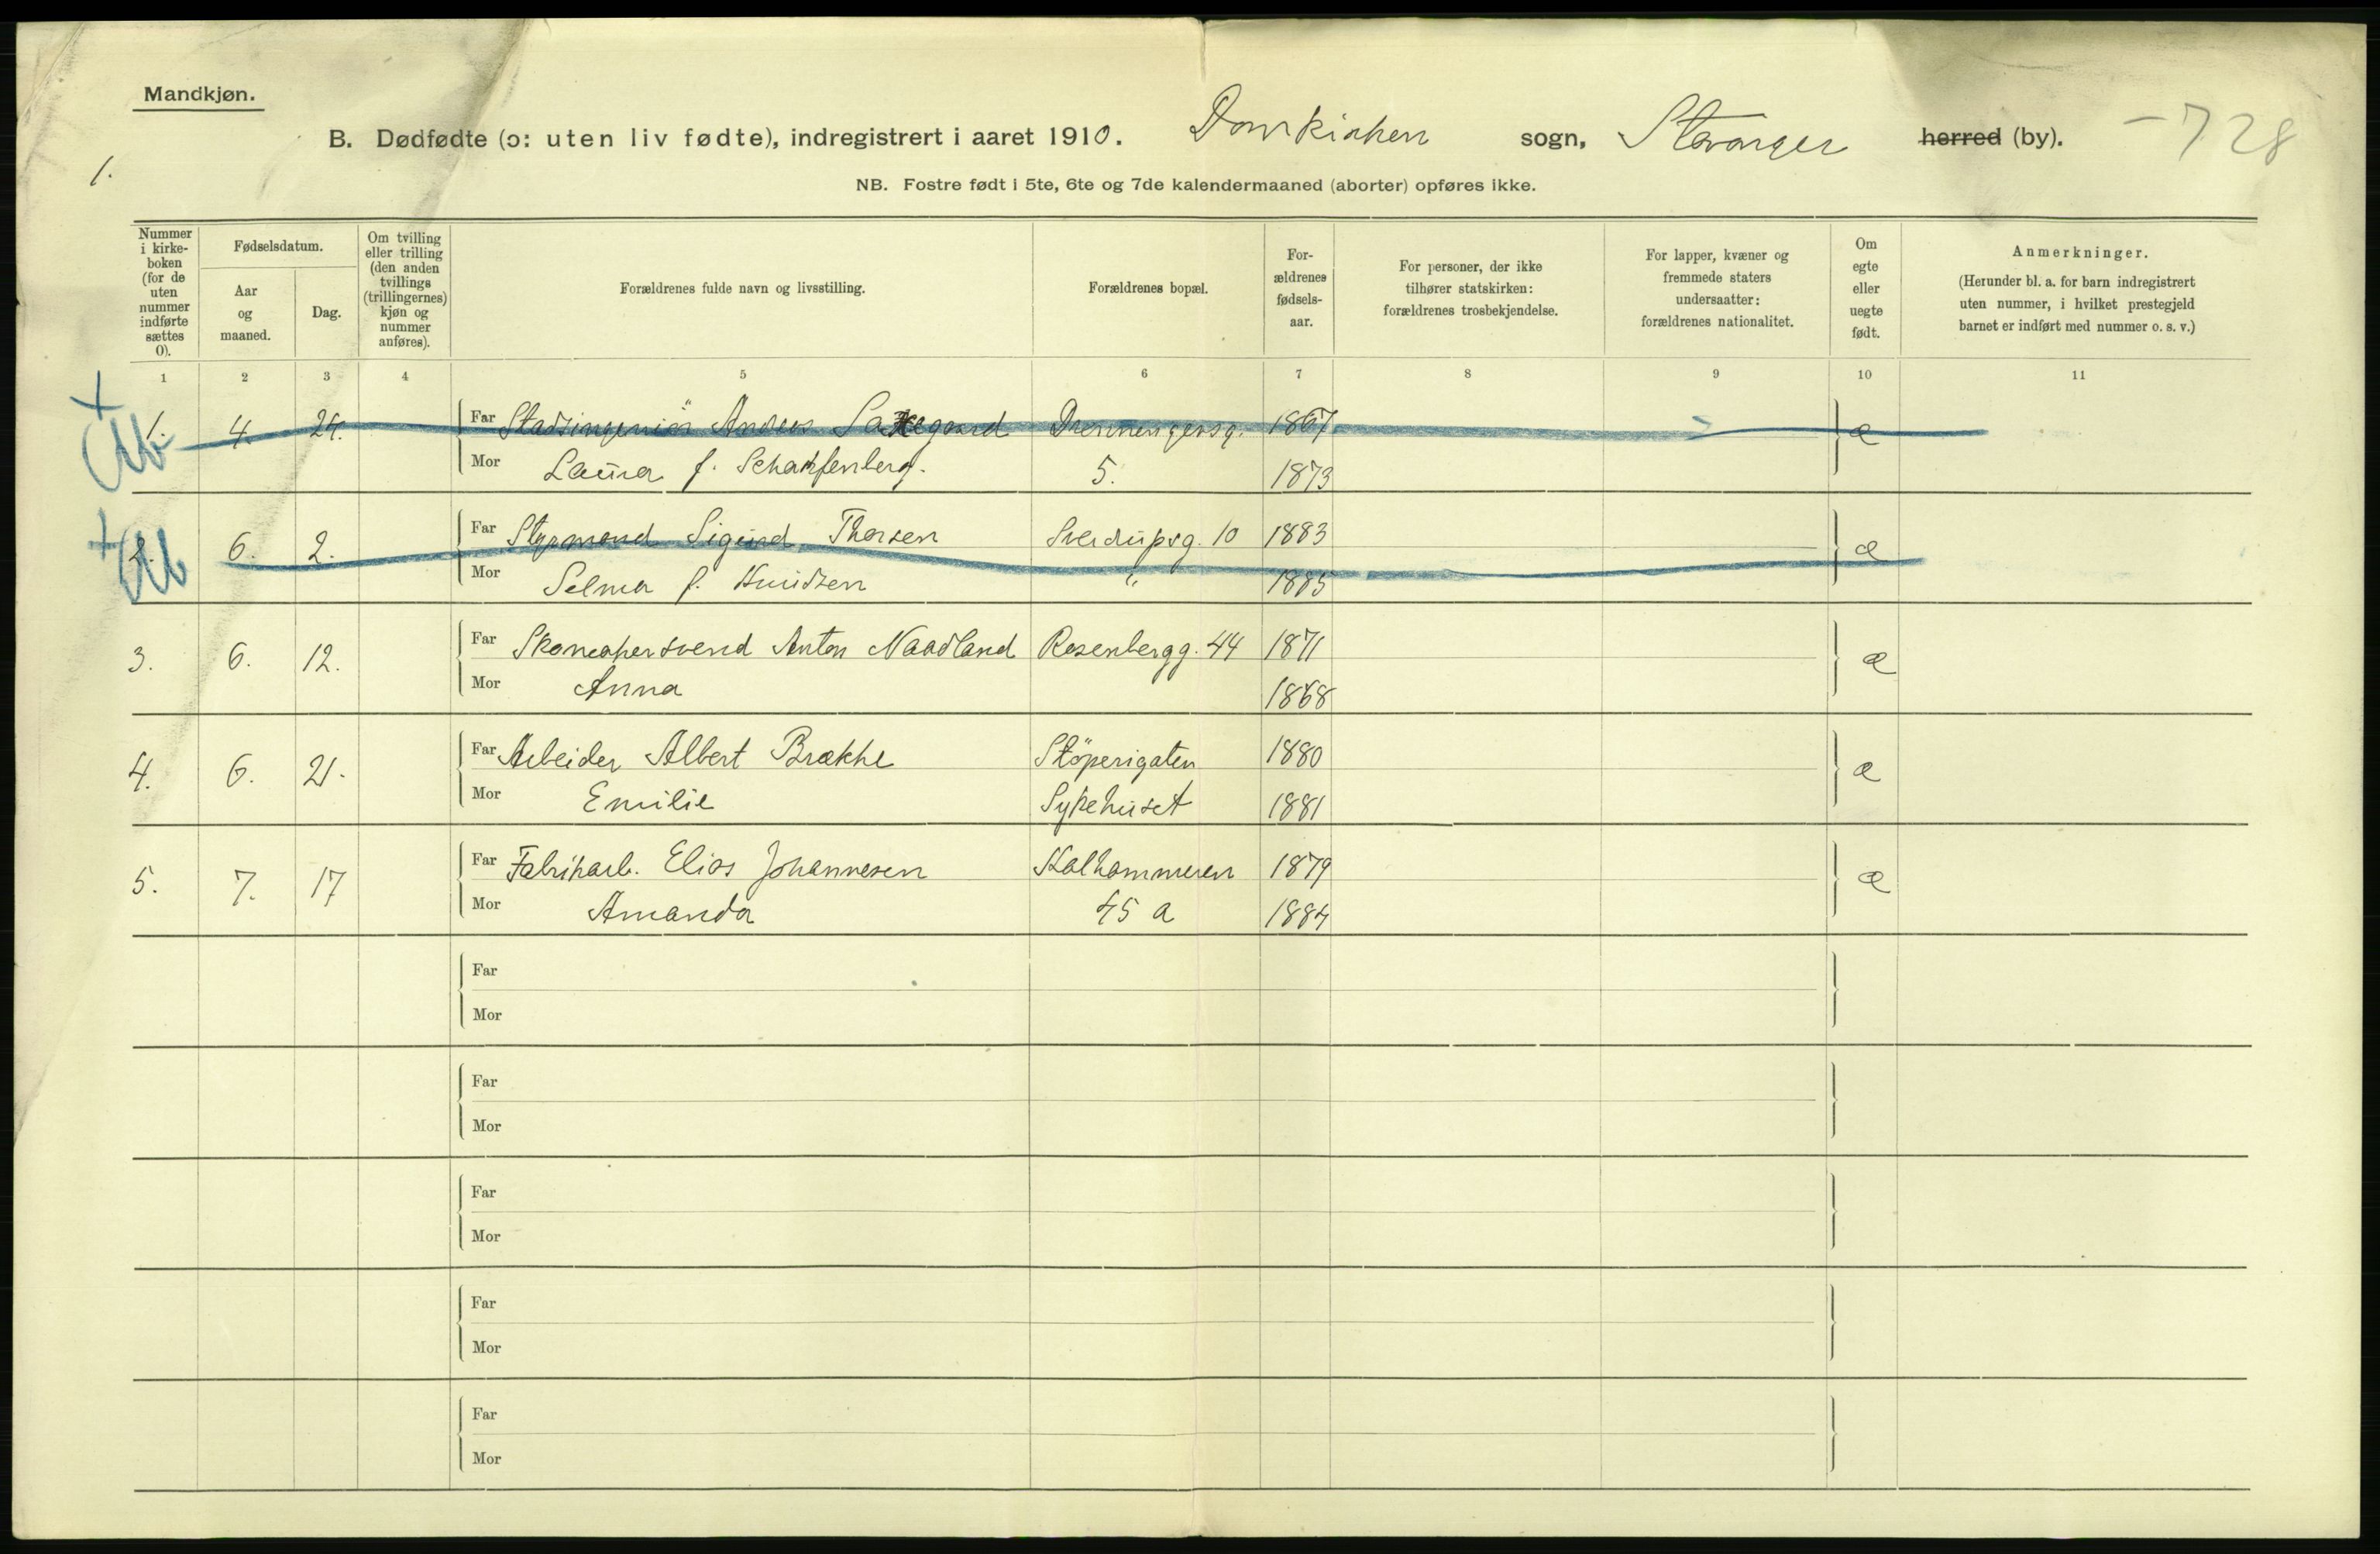 Mandkjøn.
B. Dødfødte (ɔ: uten liv fødte), indregistrert i aaret 1910. Domkirken sogn, Stavanger herred (by). -728
1.
NB. Fostre født i 5te, 6te og 7de kalendermaaned (aborter) opføres ikke.
Nummer i kirke-boken (for de uten nummer indførte sættes 0).
Fødselsdatum.
Aar og maaned.
Dag.
Om tvilling eller trilling (den anden tvillings (trillingernes) kjøn og nummer anføres).
Forældrenes fulde navn og livsstilling.
Forældrenes bopæl.
For-ældrenes fødsels-aar.
For personer, der ikke tilhører statskirken: forældrenes trosbekjendelse.
For lapper, kvæner og fremmede staters undersaatter: forældrenes nationalitet.
Om egte eller uegte født.
Anmerkninger.
(Herunder bl. a. for barn indregistrert uten nummer, i hvilket prestegjeld barnet er indført med nummer o. s. v.)
1 2 3 4 5 6 7 8 9 10 11
+ Ab
1. 4. 24. Far Stadsingeniör Anders Saxegaard 1867 æ
Mor Laura f. Scharffenberg. 5. 1873
+ Ab
2. 6. 2. Far Styrmand Sigurd Thorsen Sverdrupsg. 10 1883 æ
Mor Selma f. Knudsen " 1885
3. 6. 12. Far Skomakersvend Anton Naadland Rosenbergg. 44 1871 æ
Mor Anna 1868
4. 6. 21. Far Arbeider Albert Brække Stöperigaten 1880 æ
Mor Emilie Sykehuset 1881
5. 7. 17 Far Fabrikarb. Elias Johannesen Kalhammeren 1879 æ
Mor Amanda 45 a 1884
Far
Mor
Far
Mor
Far
Mor
Far
Mor
Far
Mor